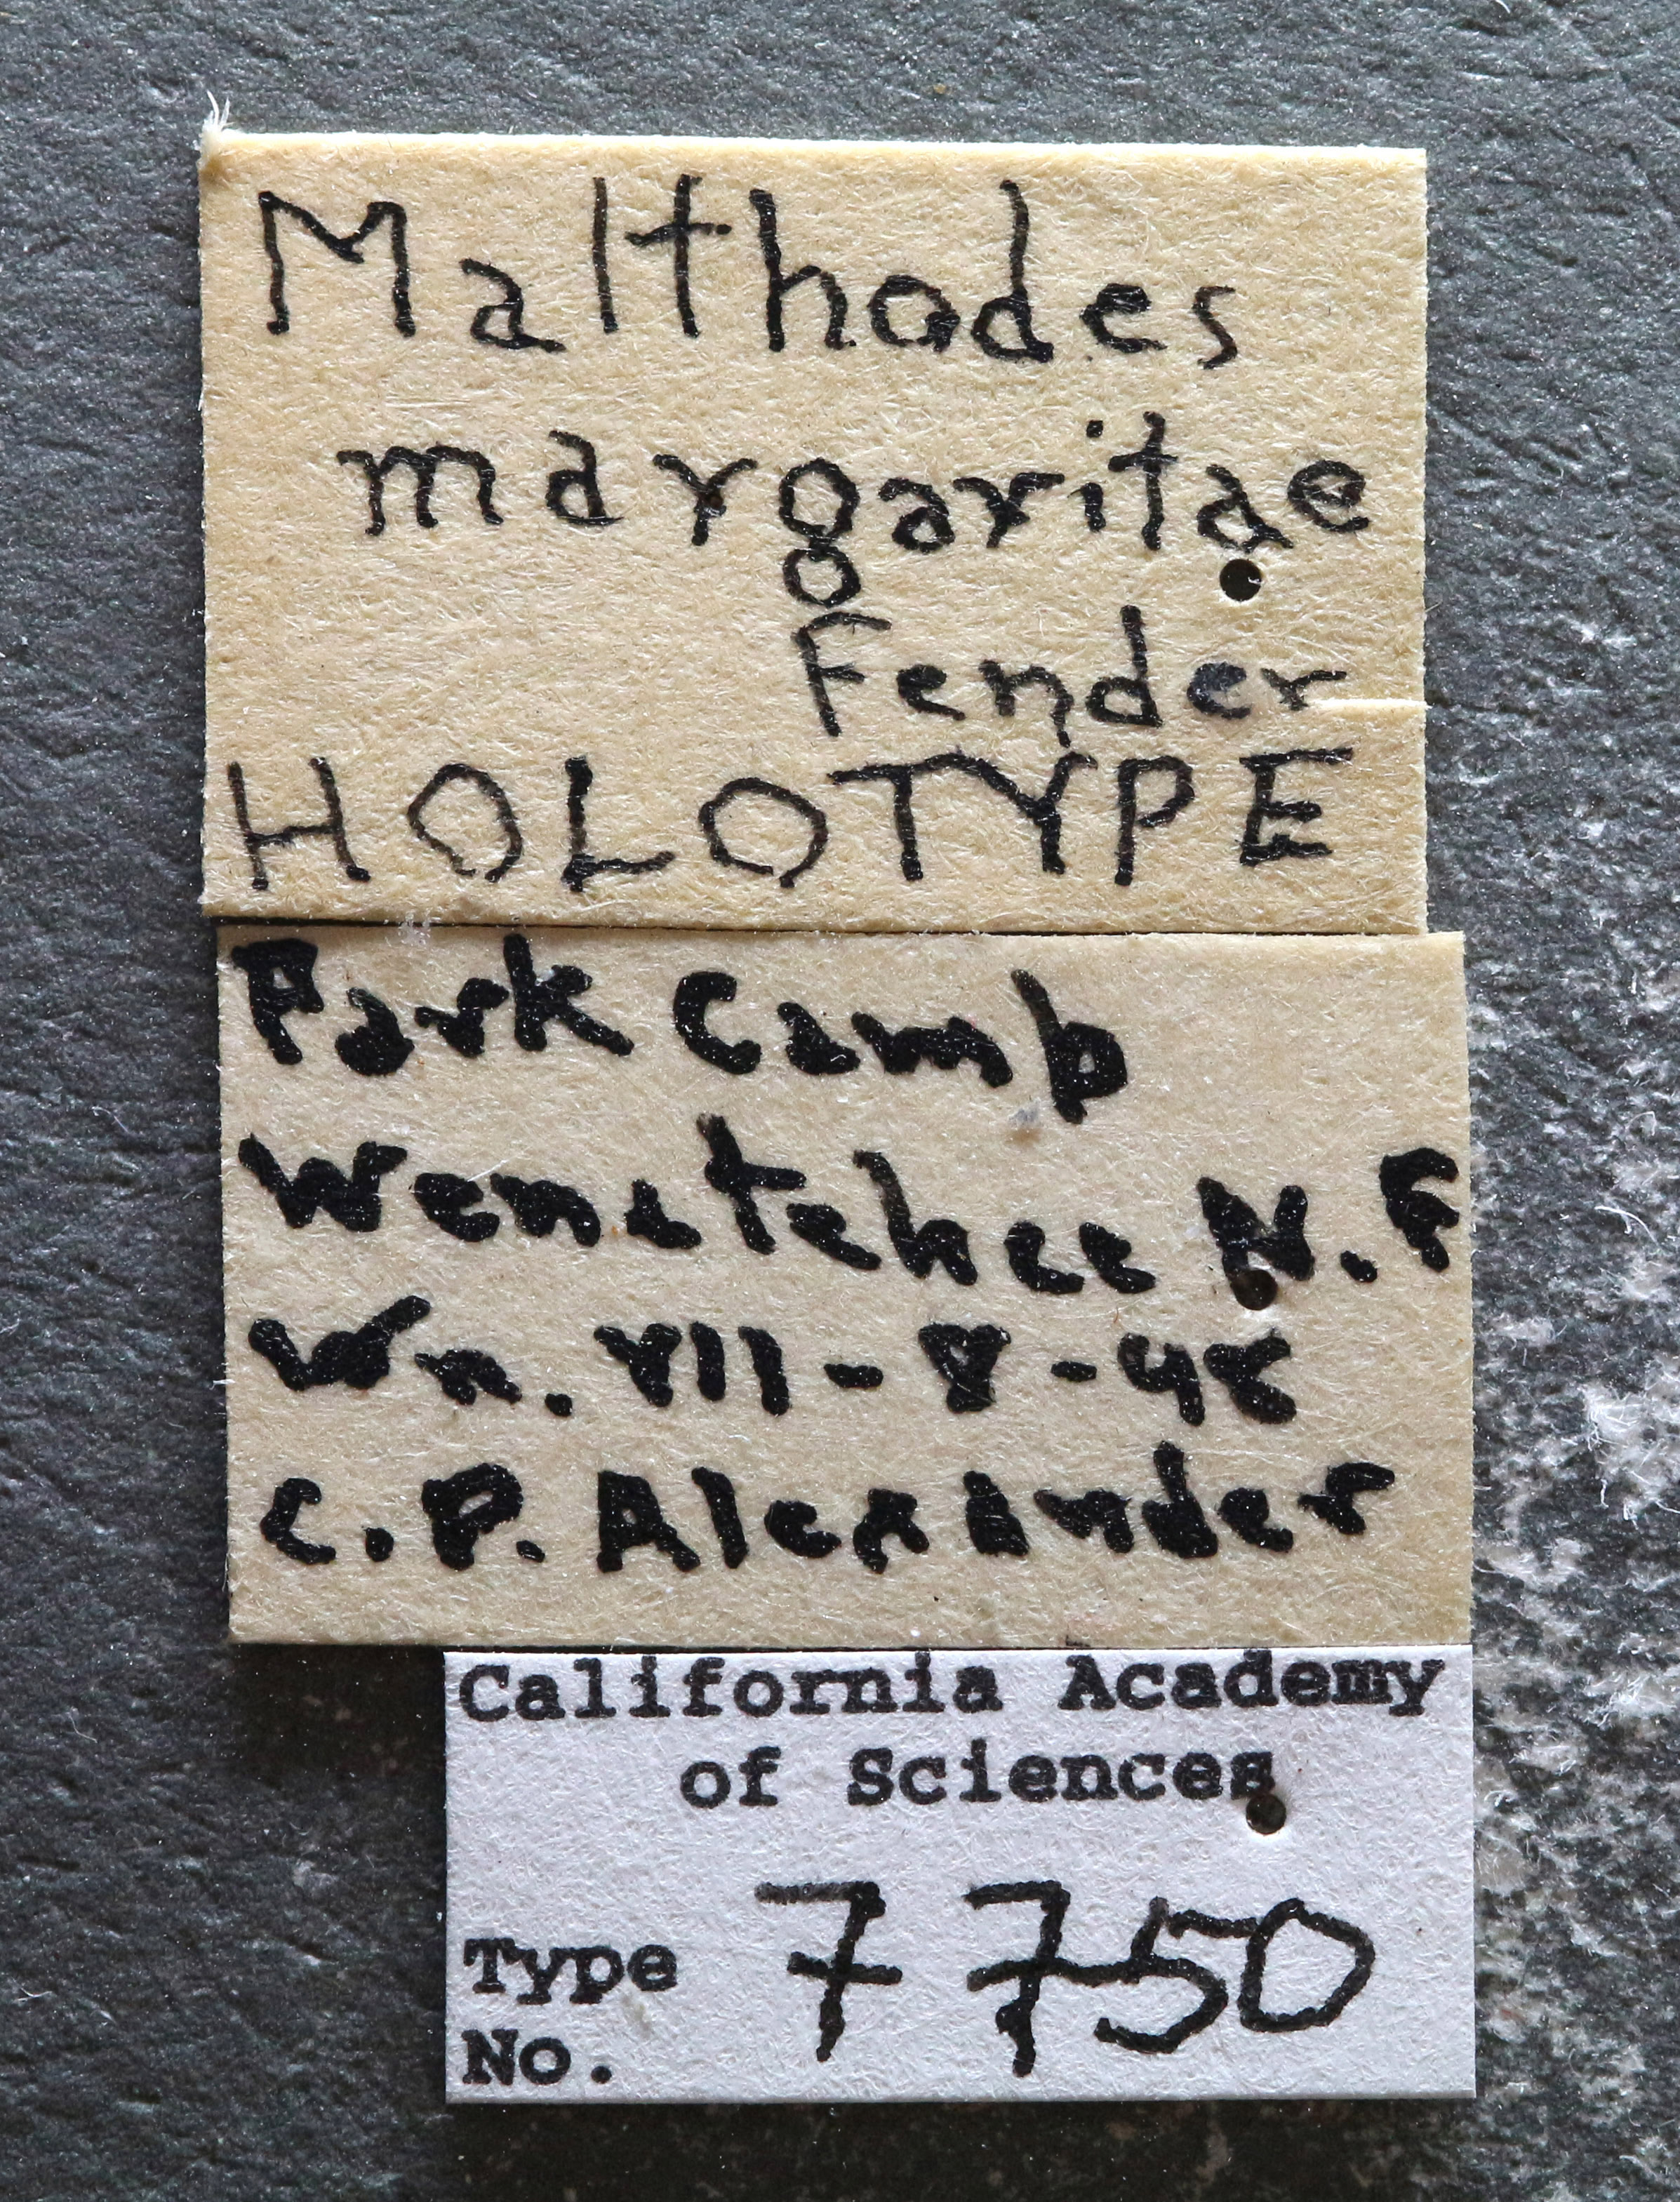 Malthodes
margaritae
Fender
HOLOTYPE
Park Camp
Wenatchee N.F
Wn. VIII-8-48
C.P. Alexander
California Academy
of Sciences
Type
No. 7750